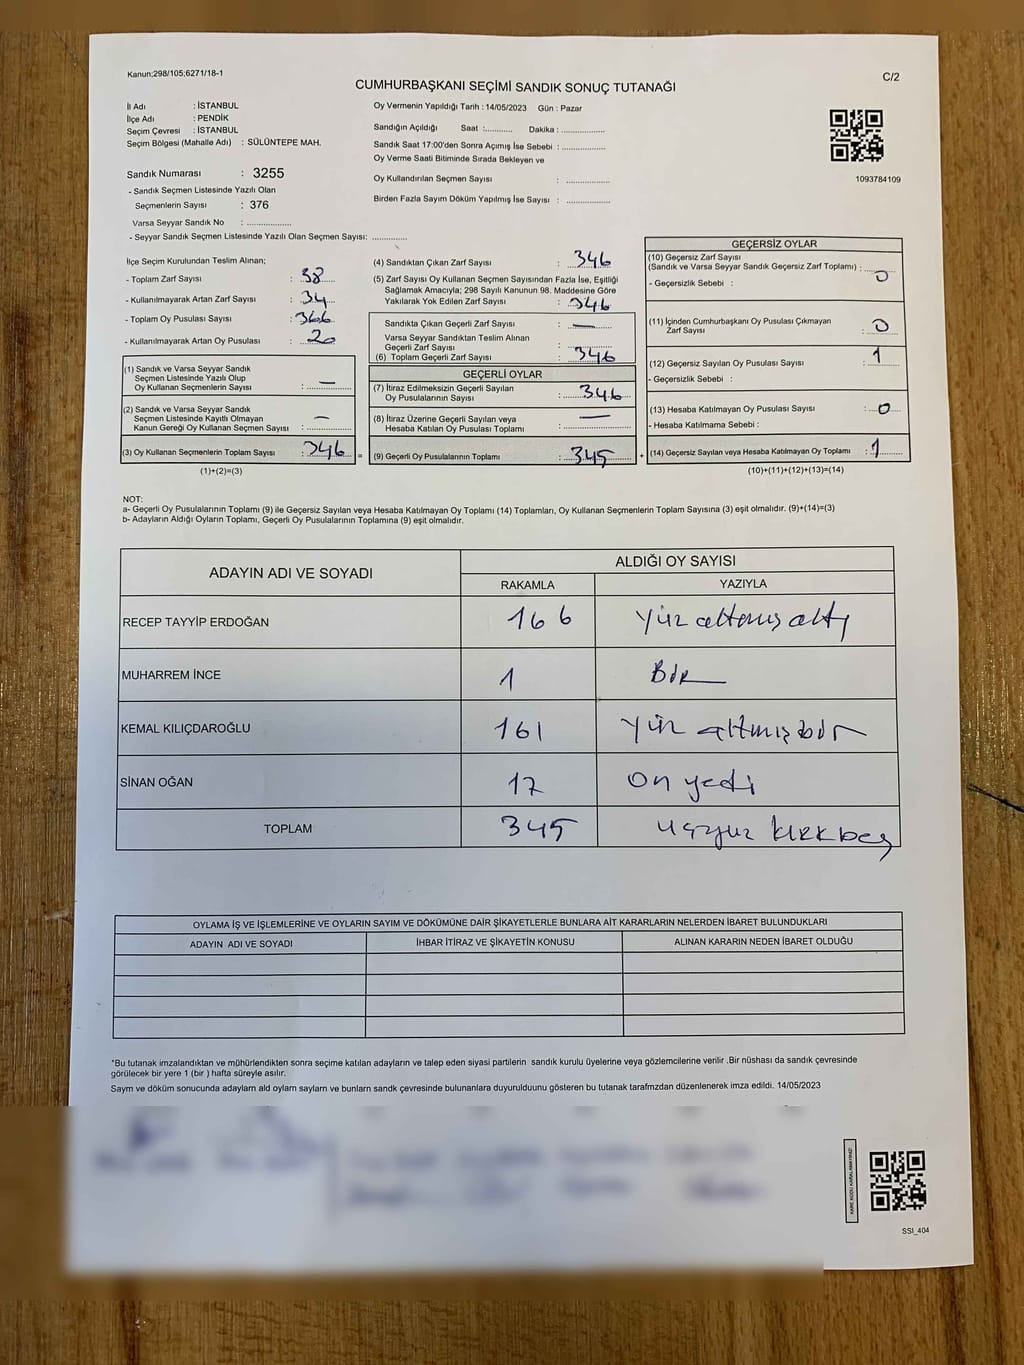 Kanun;298/105;6271/18-1
C/2
CUMHURBAŞKANI SEÇİMİ SANDIK SONUÇ TUTANAĞI
İl Adı : İSTANBUL
İlçe Adı : PENDİK
Seçim Çevresi : İSTANBUL
Seçim Bölgesi (Mahalle Adı) : SÜLÜNTEPE MAH.
Sandık Numarası : 3255
- Sandık Seçmen Listesinde Yazılı Olan
Seçmenlerin Sayısı : 376
Varsa Seyyar Sandık No : ..............
- Seyyar Sandık Seçmen Listesinde Yazılı Olan Seçmen Sayısı: ............
Oy Vermenin Yapıldığı Tarih : 14/05/2023 Gün : Pazar
Sandığın Açıldığı Saat :........... Dakika : .................
Sandık Saat 17:00'den Sonra Açımış İse Sebebi : .................
Oy Verme Saati Bitiminde Sırada Bekleyen ve
Oy Kullandırılan Seçmen Sayısı : .................
Birden Fazla Sayım Döküm Yapılmış İse Sayısı : .................
1093784109
İlçe Seçim Kurulundan Teslim Alınan;
- Toplam Zarf Sayısı : 38
- Kullanılmayarak Artan Zarf Sayısı : 34
- Toplam Oy Pusulası Sayısı : 366
- Kullanılmayarak Artan Oy Pusulası : 20
(1) Sandık ve Varsa Seyyar Sandık
Seçmen Listesinde Yazılı Olup
Oy Kullanan Seçmenlerin Sayısı : —
(2) Sandık ve Varsa Seyyar Sandık
Seçmen Listesinde Kayıtlı Olmayan
Kanun Gereği Oy Kullanan Seçmen Sayısı : —
(3) Oy Kullanan Seçmenlerin Toplam Sayısı : 346 =
(1)+(2)=(3)
(4) Sandıktan Çıkan Zarf Sayısı : 346
(5) Zarf Sayısı Oy Kullanan Seçmen Sayısından Fazla İse, Eşitliği
Sağlamak Amacıyla; 298 Sayılı Kanunun 98. Maddesine Göre
Yakılarak Yok Edilen Zarf Sayısı : 346
Sandıkta Çıkan Geçerli Zarf Sayısı : —
Varsa Seyyar Sandıktan Teslim Alınan
Geçerli Zarf Sayısı :
(6) Toplam Geçerli Zarf Sayısı : 346
GEÇERLİ OYLAR
(7) İtiraz Edilmeksizin Geçerli Sayılan
Oy Pusulalarının Sayısı : 346
(8) İtiraz Üzerine Geçerli Sayılan veya
Hesaba Katılan Oy Pusulası Toplamı : —
(9) Geçerli Oy Pusulalarının Toplamı : 345 +
GEÇERSİZ OYLAR
(10) Geçersiz Zarf Sayısı
(Sandık ve Varsa Seyyar Sandık Geçersiz Zarf Toplamı) : 0
- Geçersizlik Sebebi :
(11) İçinden Cumhurbaşkanı Oy Pusulası Çıkmayan
Zarf Sayısı : 0
(12) Geçersiz Sayılan Oy Pusulası Sayısı : 1
- Geçersizlik Sebebi :
(13) Hesaba Katılmayan Oy Pusulası Sayısı : 0
- Hesaba Katılmama Sebebi :
(14) Geçersiz Sayılan veya Hesaba Katılmayan Oy Toplamı : 1
(10)+(11)+(12)+(13)=(14)
NOT:
a- Geçerli Oy Pusulalarının Toplamı (9) ile Geçersiz Sayılan veya Hesaba Katılmayan Oy Toplamı (14) Toplamları, Oy Kullanan Seçmenlerin Toplam Sayısına (3) eşit olmalıdır. (9)+(14)=(3)
b- Adayların Aldığı Oyların Toplamı, Geçerli Oy Pusulalarının Toplamına (9) eşit olmalıdır.
ADAYIN ADI VE SOYADI ALDIĞI OY SAYISI
RAKAMLA YAZIYLA
RECEP TAYYİP ERDOĞAN 166 Yüz altmış altı
MUHARREM İNCE 1 Bir
KEMAL KILIÇDAROĞLU 161 Yüz altmış bir
SİNAN OĞAN 17 On yedi
TOPLAM 345 üçyuz kırkbeş
OYLAMA İŞ VE İŞLEMLERİNE VE OYLARIN SAYIM VE DÖKÜMÜNE DAİR ŞİKAYETLERLE BUNLARA AİT KARARLARIN NELERDEN İBARET BULUNDUKLARI
ADAYIN ADI VE SOYADI İHBAR İTİRAZ VE ŞİKAYETİN KONUSU ALINAN KARARIN NEDEN İBARET OLDUĞU
*Bu tutanak imzalandıktan ve mühürlendikten sonra seçime katılan adayların ve talep eden siyasi partilerin sandık kurulu üyelerine veya gözlemcilerine verilir .Bir nüshası da sandık çevresinde
görülecek bir yere 1 (bir ) hafta süreyle asılır.
Saym ve döküm sonucunda adaylarn ald oylarn saylarn ve bunlarn sandk çevresinde bulunanlara duyurulduunu gösteren bu tutanak tarafmzdan düzenlenerek imza edildi. 14/05/2023
KARE KODU KARALAMAYINIZ!
SSI_404